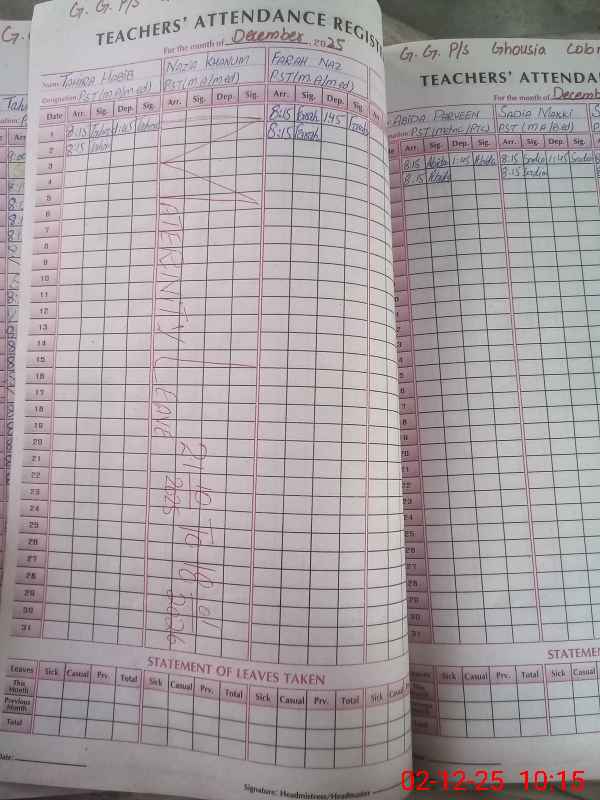 G. G. P/s
TEACHERS' ATTENDANCE REGIST
For the month of December, 2025
Name: TAHIRA HABIB NAZIA KHANUM FARAH NAZ
Designation: PST(M.A/M.ed) PST(M.A/M.ed) PST(M.A/M.ed)
Date Arr. Sig. Dep. Sig. Arr. Sig. Dep. Sig. Arr. Sig. Dep. Sig. Arr
1 8:15 1:45 8:15 Farah 1:45 Farah
2 8:15 8:15 Farah
3
4
5
6
7
8
9
10
11
12
13
14
15
16
17
18
19
20
21
22
23
24
25
26
27
28
29
30
31
MATERNITY LEAVE
21 10 2025 To 18 01 2026
STATEMENT OF LEAVES TAKEN
Leaves Sick Casual Prv. Total Sick Casual Prv. Total Sick Casual Prv. Total Sick Casual
This Month
Previous Month
Total
Date:
Signature: Headmistress/Headmaster
G. G. P/s Ghousia Colon
TEACHERS' ATTENDA
For the month of Decemb
ABIDA PARVEEN SADIA MAKKI
PST PST (M A/B.ed)
Arr. Sig. Dep. Sig. Arr. Sig. Dep. Sig.
8:15 Abida 1:45 Abida 8:15 Sadia 1:45 Sadia
8:15 Abida 8:15 Sadia
STATEMEN
Sick Casual Prv. Total Sick Casual Prv. Total
02-12-25 10:15